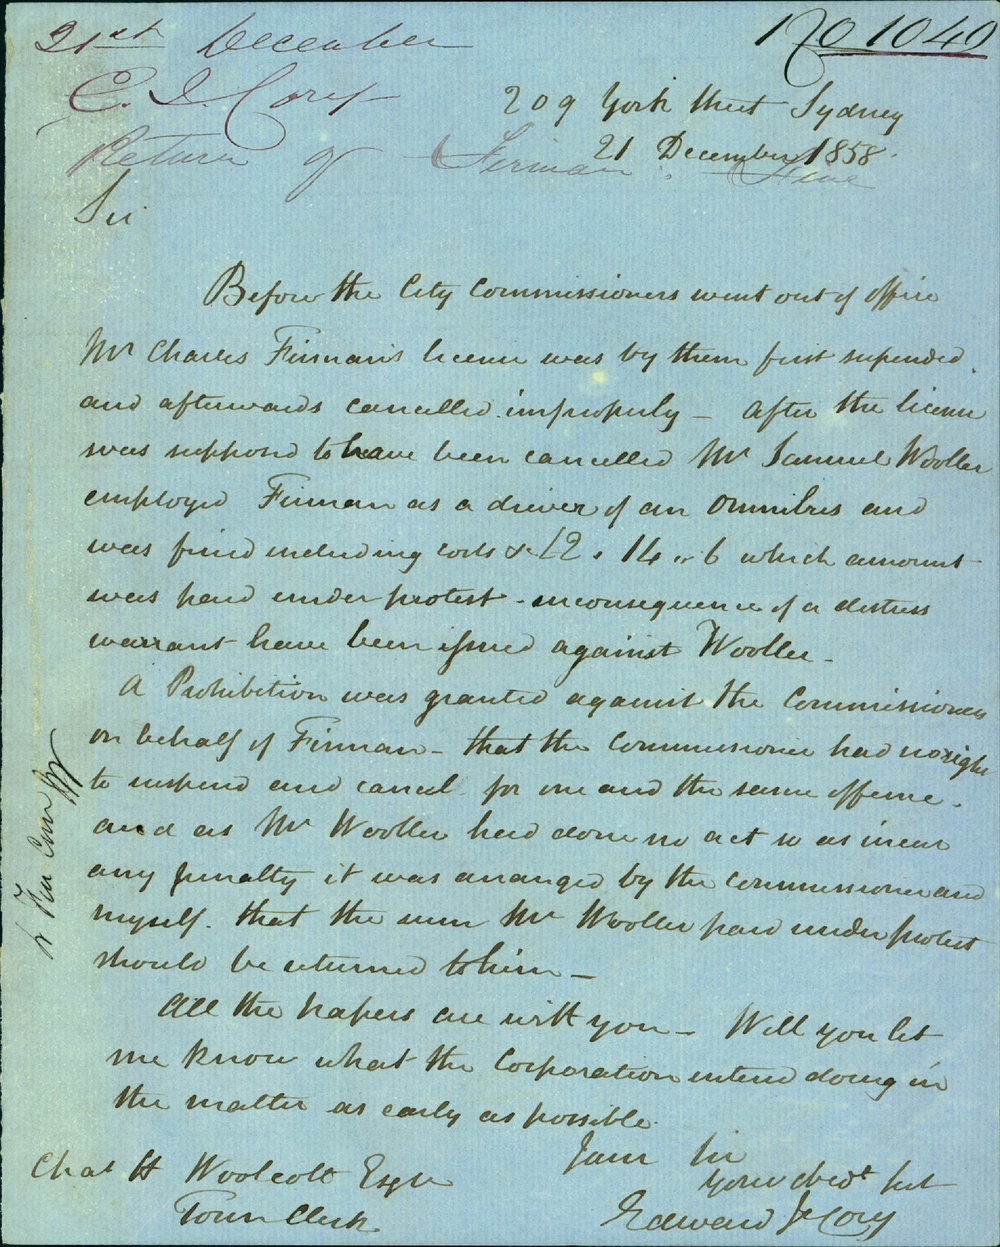 No 1040
21st December
E. J. Cory
Return of Firman's Fine
209 York Street Sydney
21 December 1858.
Sir
Before the City Commissioners went out of office
Mr Charles Firman's license was by them first supended
and afterwards cancelled improperly – After the license
was supposed to have been cancelled Mr Samuel Woller
employed Firman as a driver of an Omnibus and
was fined including costs &c £2 . 14 . 6 which amount
was paid under protest – inconsequence of a distress
warrant have been issued against Woller –
A Prohibition was granted against the Commissioners
on behalf of Firman – that the Commissioner had no right
to suspend and cancel for one and the same offence.
and as Mr Woller had done no act so as incur
any penalty it was arranged by the Commissioner and
myself. that the sum Mr Woller paid under protest
should be returned to him –
All the papers are with you – Will you let
me know what the Corporation intend doing in
the matter as early as possible.
I am Sir
Your obedt servt
Edward J Cory
Chas H Woolcott Esqre
Town Clerk